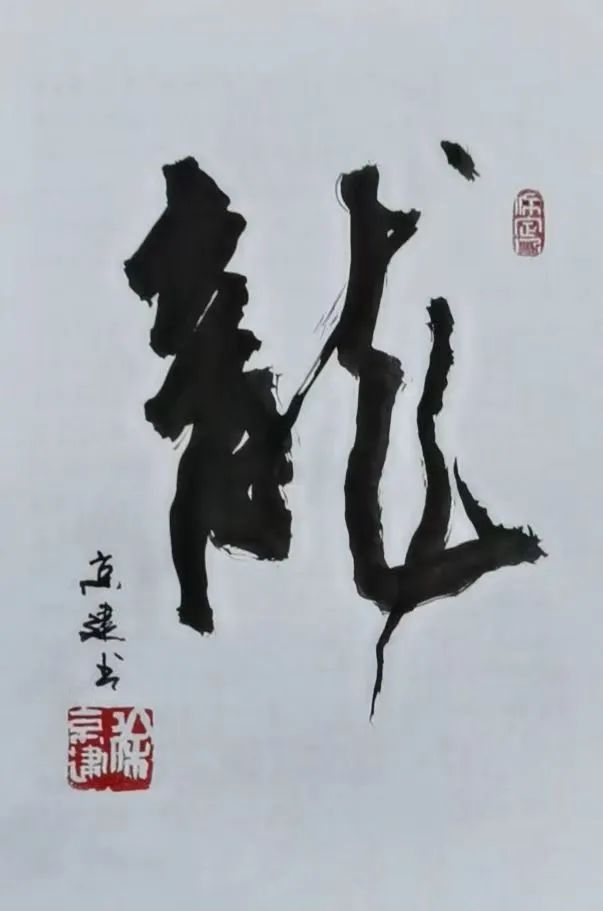 龍
京建书
徐京建